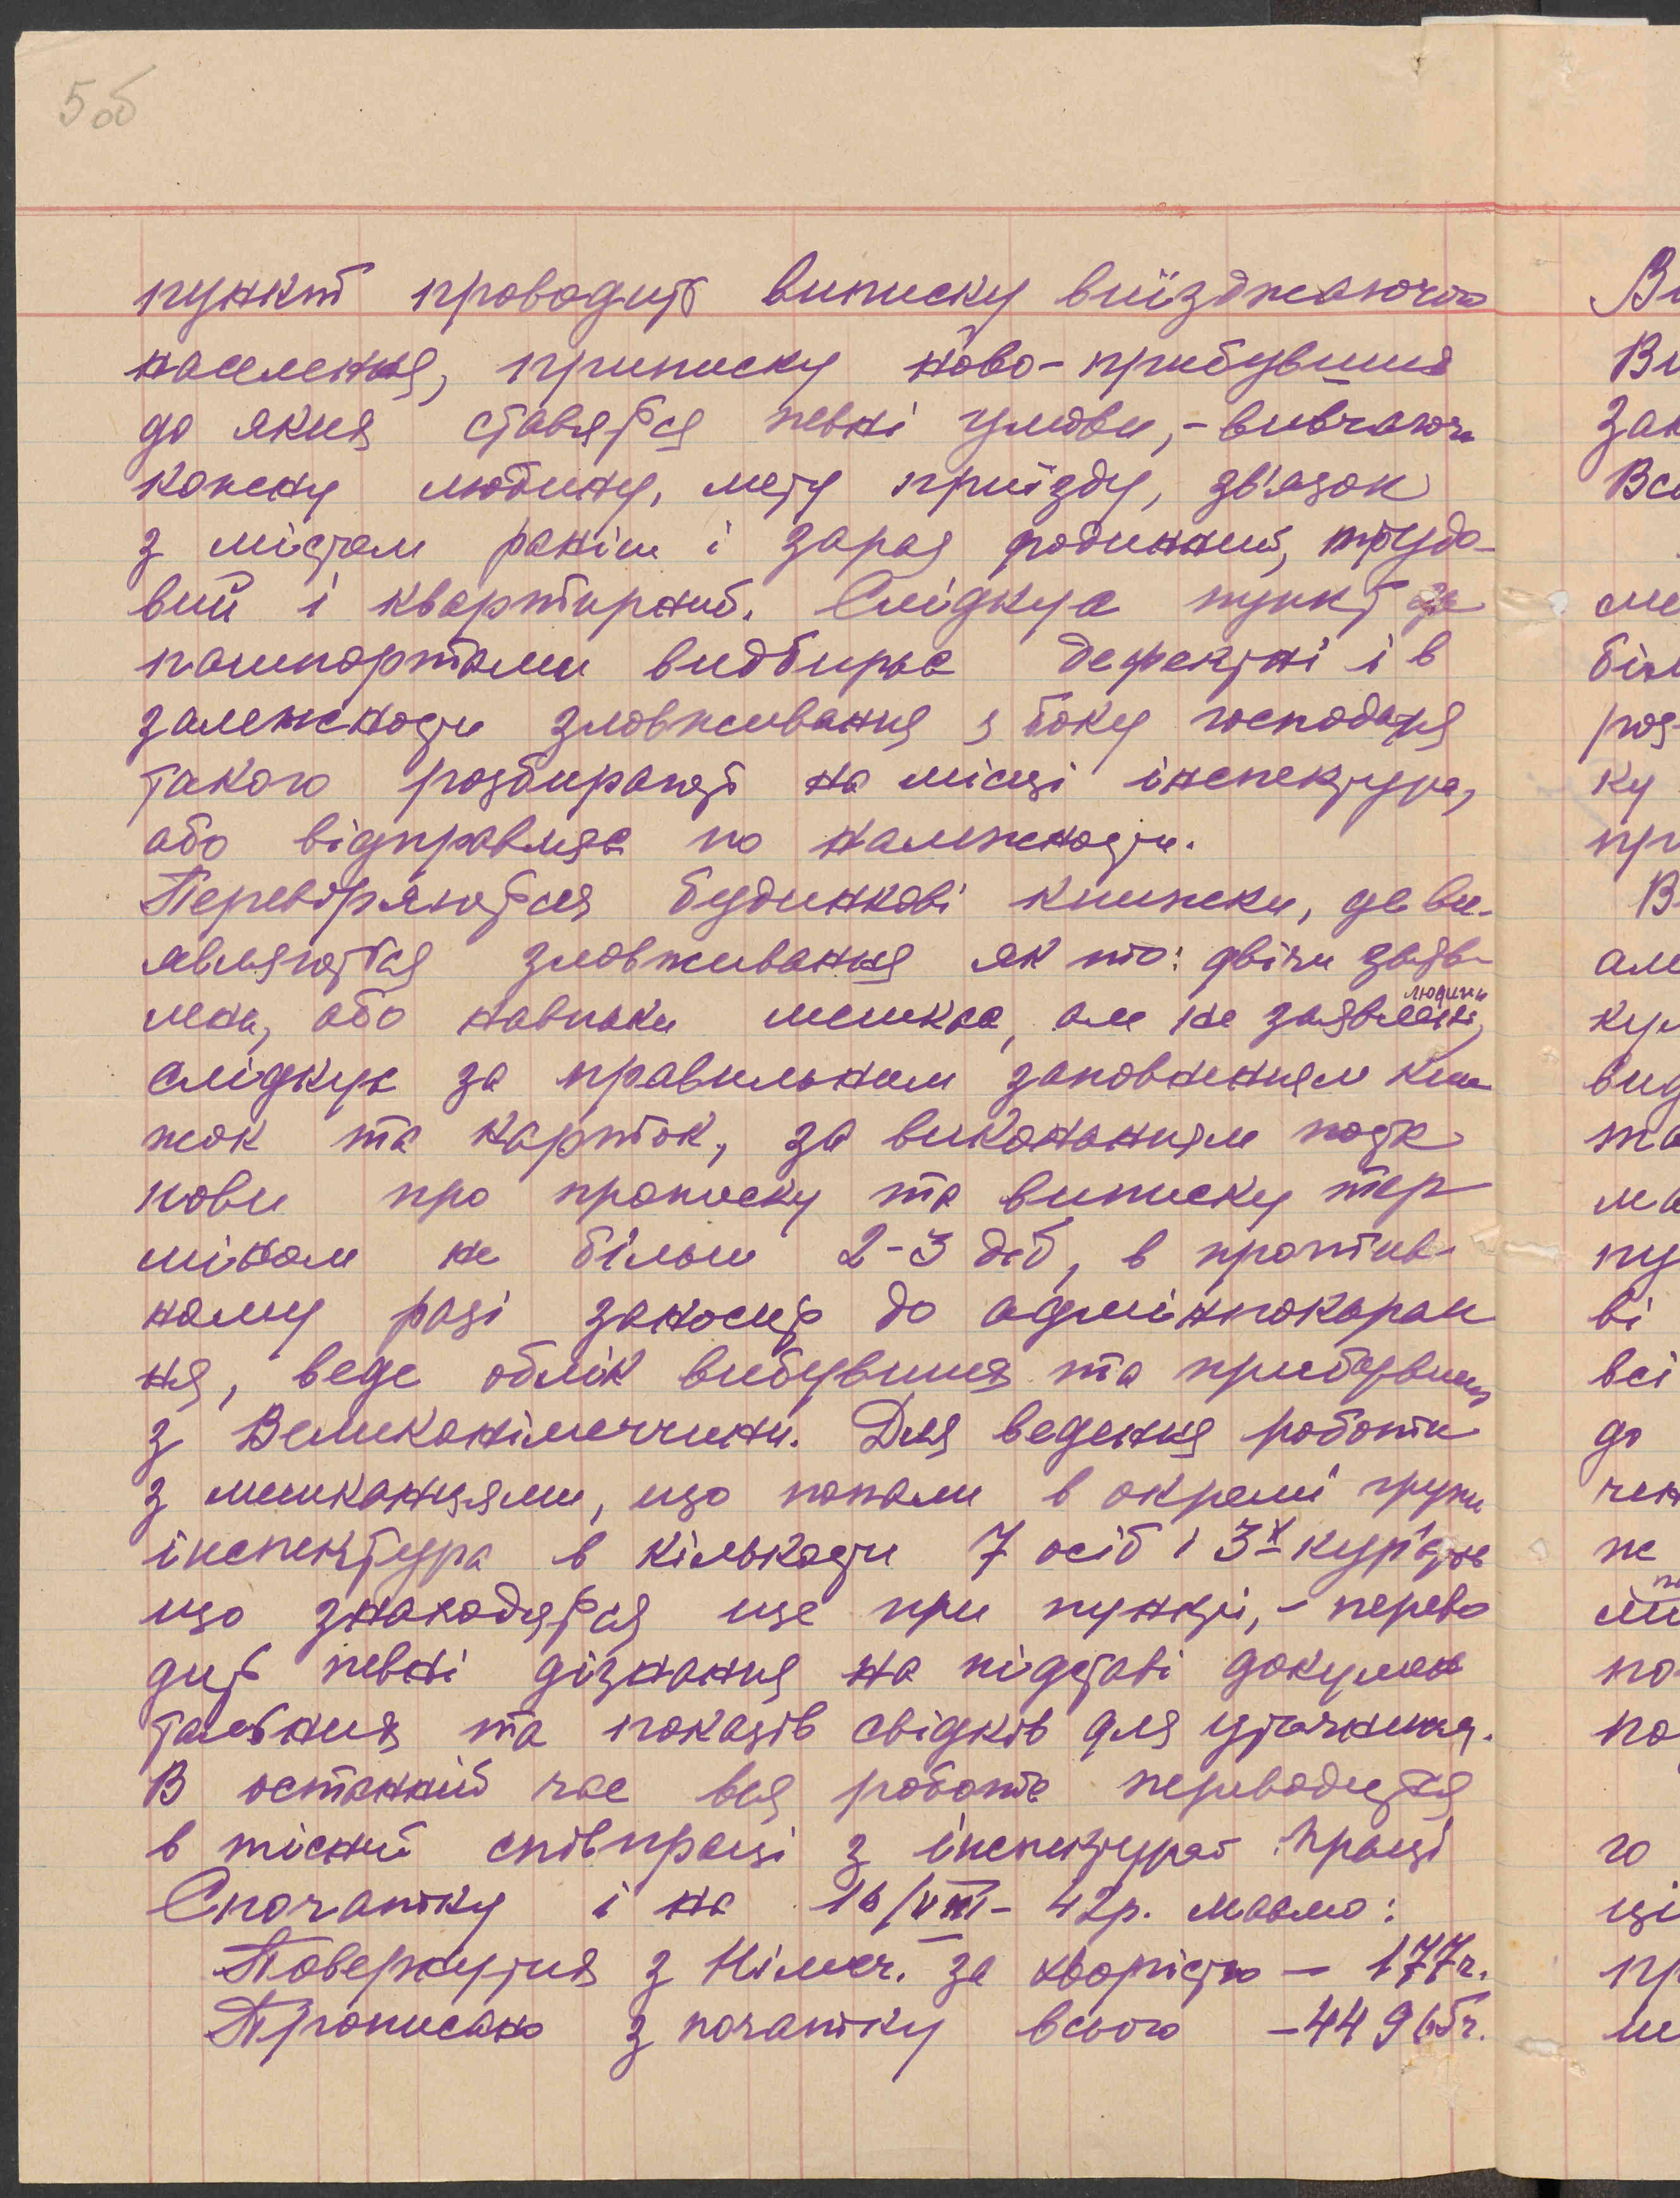 5об
пункт проводить виписку виїзджаючого
населення, приписку ново-прибувших
до яких ставяться певні умови,- вивчаючи
кожну людину, мету приїзду, зв'язок
з містом раніш і зараз родинний, трудо-
вий і квартирний. Слідкує пункт за
пашпортами видбирає дефектні і в
залежности зловживання з боку господаря
такого розбирають на місці інспектура,
або відправляє по належности.
Перевіряються будинкові книжки, де ви-
являються зловживання як то: двічи заяв-
лени, або навпаки мешкає, але не заявлені людини,
слідкує за правильним заповненням книж
жок та карток, за виконанням поста
нови про прописку та виписку тер
міном не більш 2-3 діб, в против-
ному разі заносить до адмінпокаран
ня, веде облік вибувших та прибувших
з Великонімеччини. Для ведення роботи
з мешканцями, що попали в окремі групи
інспектура в кількости 7 осіб і 3х кур'єрів
що знаходяться ще при пункті,- перево
дить певні дізнання на підставі докумен
тальних та показів свідків для уточнення.
В останній час вся робота переводиться
в тісній співпраці з інспектурою праці
Спочатку і на 16/VIII- 42р. маємо:
Повернутих з Німеч. за хворістю - 177ч.
Прописано з початку всього -44965ч.